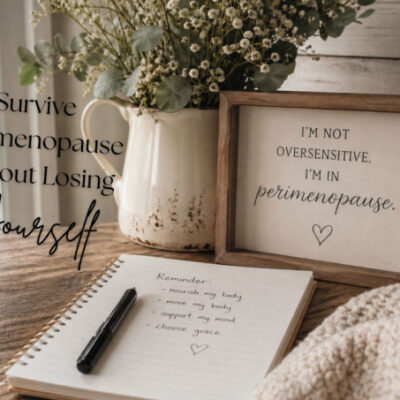 Survive
menopause
out Losing
ourself
I'M NOT
OVERSENSITIVE.
I'M IN
perimenopause.
Reminder:
- nourish my body
- move my body
- support my mind
- choose grace